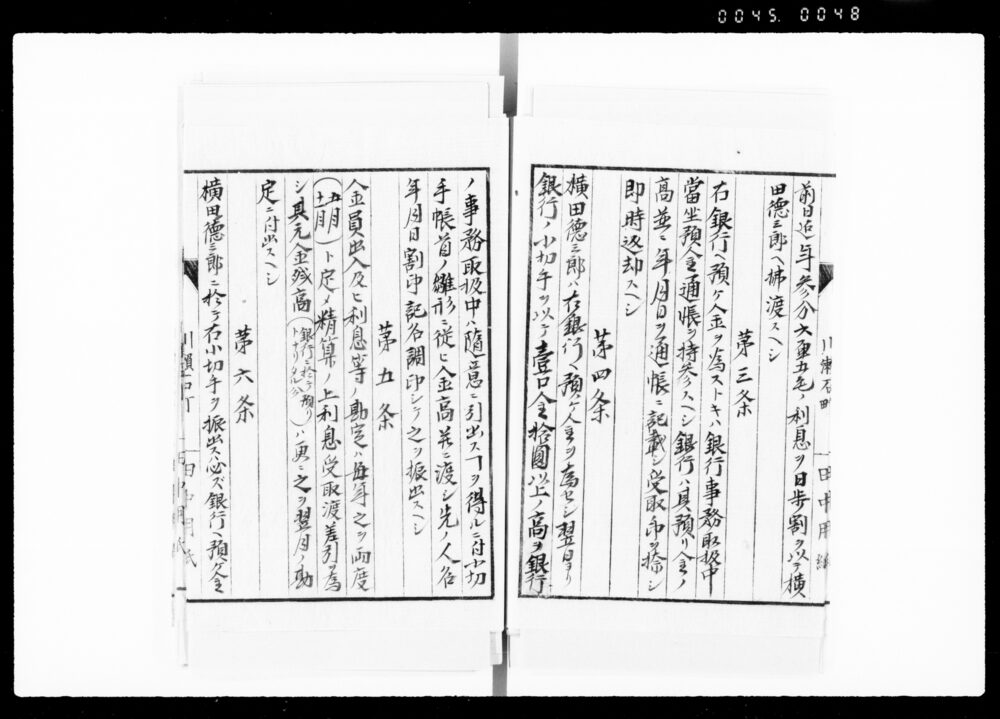 0045. 0048
前日迄ニ年参分六厘五毛ノ利息ヲ日歩割ヲ以テ横
田徳三郎ヘ拂渡スヘシ
第三条
右銀行ヘ預ケ人金ヲ為ストキハ銀行事務取扱中
當坐預金通帳ヲ持参スヘシ銀行ハ其預リ金ノ
高並ニ年月日ヲ通帳ニ記載シ受取印ヲ捺シ
即時返却スヘシ
第四条
横田徳三郎ハ右銀行ヘ預ケ金ヲ為セシ翌日ヨリ
銀行ノ小切手ヲ以テ壹口金拾圓以上ノ高ヲ銀行
ノ事務取扱中ハ随意ニ引出スヿヲ得ル付小切
手帳首ノ雛形ニ従ヒ金高并ニ渡シ先ノ人名
年月日割印記名調印シテ之ヲ振出スヘシ
第五条
金員出入及ヒ利息等ノ勘定ハ毎年之ヲ両度
(五月十一月)ト定メ精算ノ上利息受取渡差引ヲ為
シ其元金残高(銀行ニ於テ預リトナリタル分)ハ更ニ之ヲ翌月ノ勘
定ニ付出スヘシ
第六条
横田徳三郎ニ於テ右小切手ヲ振出ス必ズ銀行ヘ預ケ金
川瀬石町
田中用紙